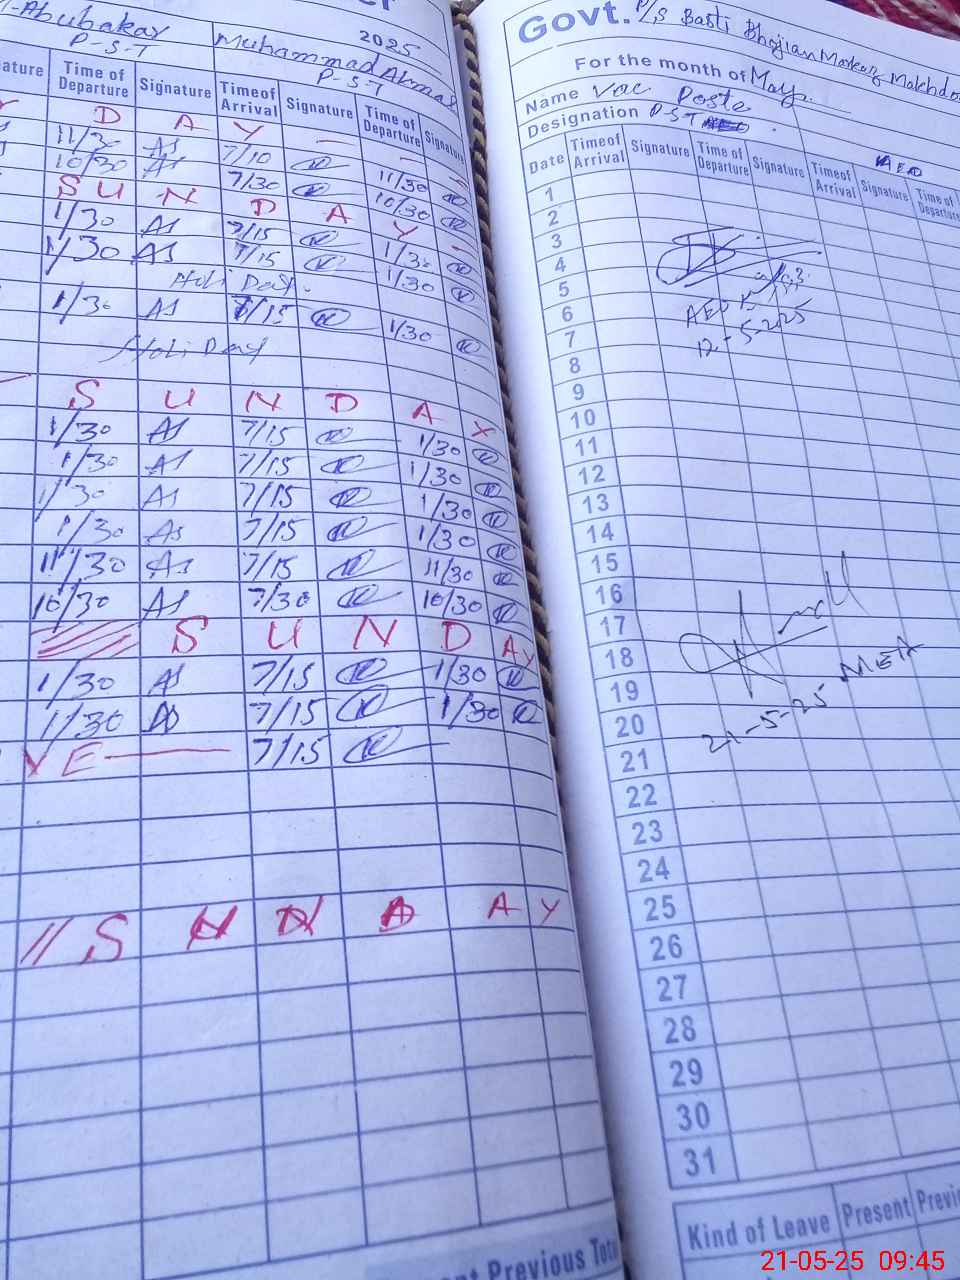 Abubakar
P-S-T
Muhammad Ahmad
P-S-T
2025
Time of Departure
Signature
Time of Arrival
Signature
Time of Departure
Signature
D A Y
11/30 AS 7/10 11/30
10/30 AS 7/30 10/30
S U N D A Y
1/30 AS 7/15 1/30
1/30 AS 7/15 1/30
Holi Day.
1/30 AS 7/15 1/30
Holi Day
S U N D A Y
1/30 AS 7/15 1/30
1/30 AS 7/15 1/30
1/30 AS 7/15 1/30
1/30 AS 7/15 1/30
11/30 AS 7/15 11/30
10/30 AS 7/30 10/30
S U N D A Y
1/30 AS 7/15 1/30
1/30 AS 7/15 1/30
VE 7/15
S U N D A Y
Previous Total
Govt. P/S Basti Bhojian Markaz Makhdo
For the month of May
Name Vac Poste
Designation P-S-T
AEO
Date
Time of Arrival
Signature
Time of Departure
Signature
Time of Arrival
Signature
Time of Departure
1
2
3
4
5
6
7
8
9
10
11
12
13
14
15
16
17
18
19
20
21
22
23
24
25
26
27
28
29
30
31
AEO
12-5-2025
21-5-25 MEA
Kind of Leave
Present
21-05-25 09:45